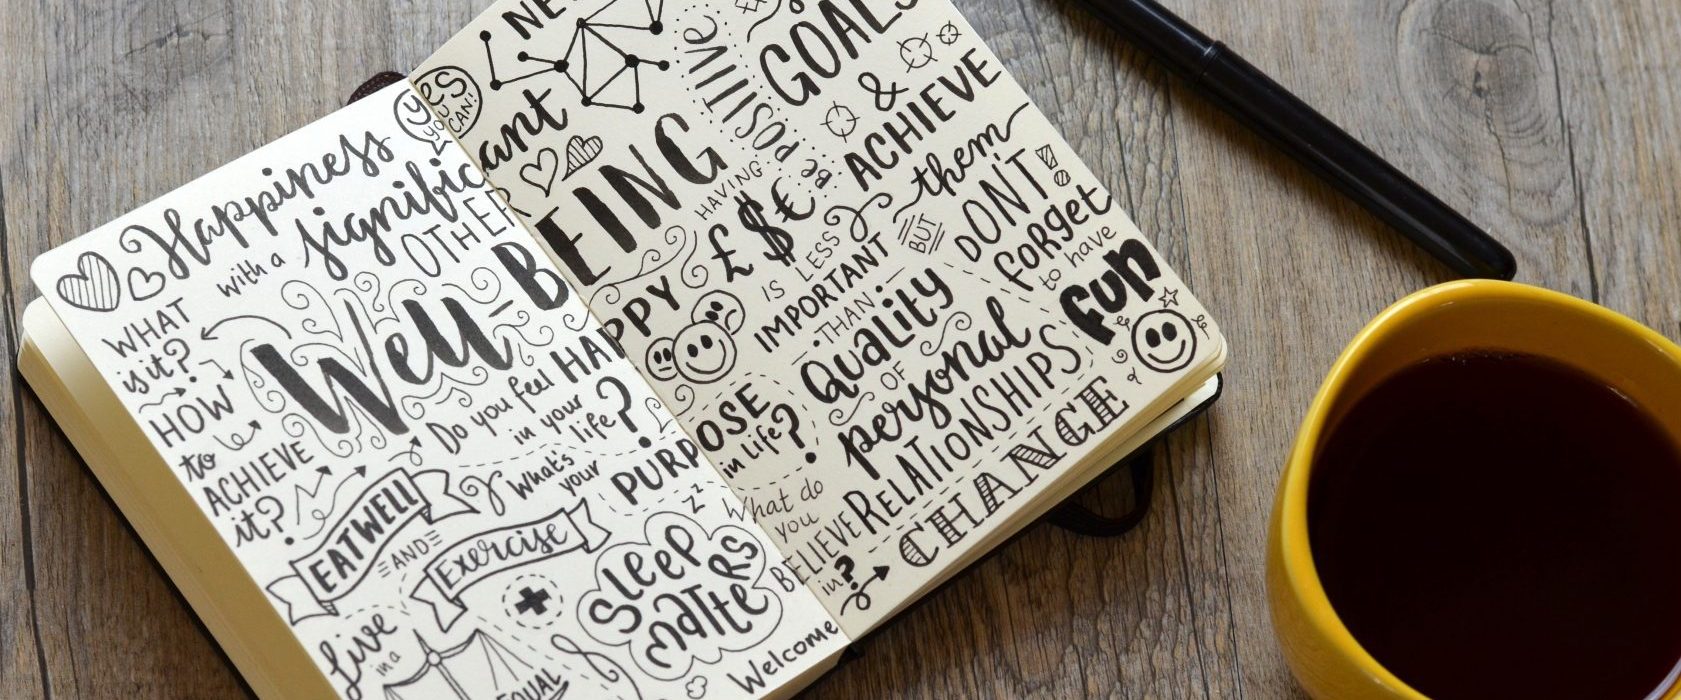 YES
YOU
CAN!
Happiness
with a
significant
OTHER
WHAT
is it?
HOW
to
ACHIEVE
it?
WELL-BEING
Do you feel HAPPY
in your
life?
EAT WELL
AND
Exercise
What's
your
PURPOSE
in life?
z z z
SLEEP
MATTERS
Live
in a
EQUAL
Welcome
What do
you
BELIEVE
in?
BE POSITIVE
GOALS
&
ACHIEVE
them
HAVING
£ $ €
IS LESS
IMPORTANT
THAN
QUALITY
OF
personal
RELATIONSHIPS
BUT
DON'T!
forget
to have
FUN
CHANGE